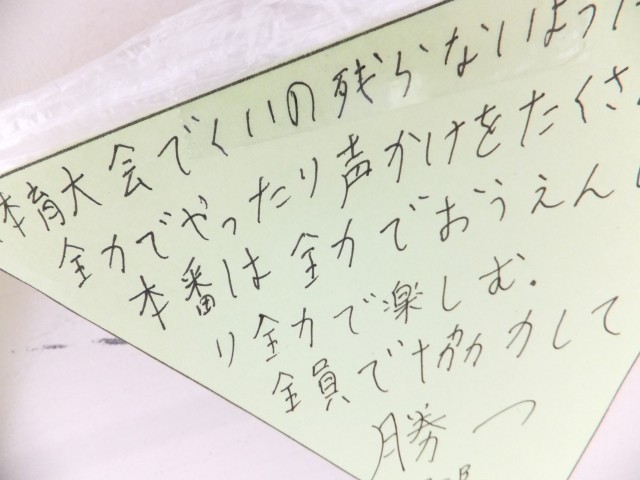 体育大会でくいの残らないよう
全力でやったり声かけをたくさ
本番は全力でおうえんし
り全力で楽しむ.
全員で協力して
勝つ